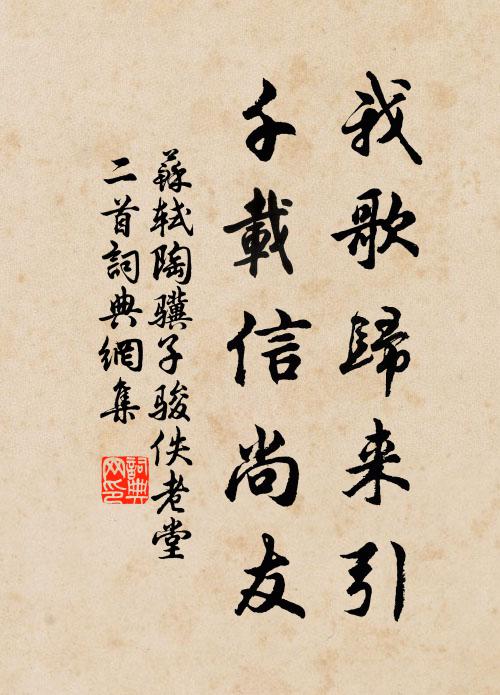 我歌歸来引
千載信尚友
蘇軾陶骥子骏佚老堂
二首詞典網集
詞典
网印